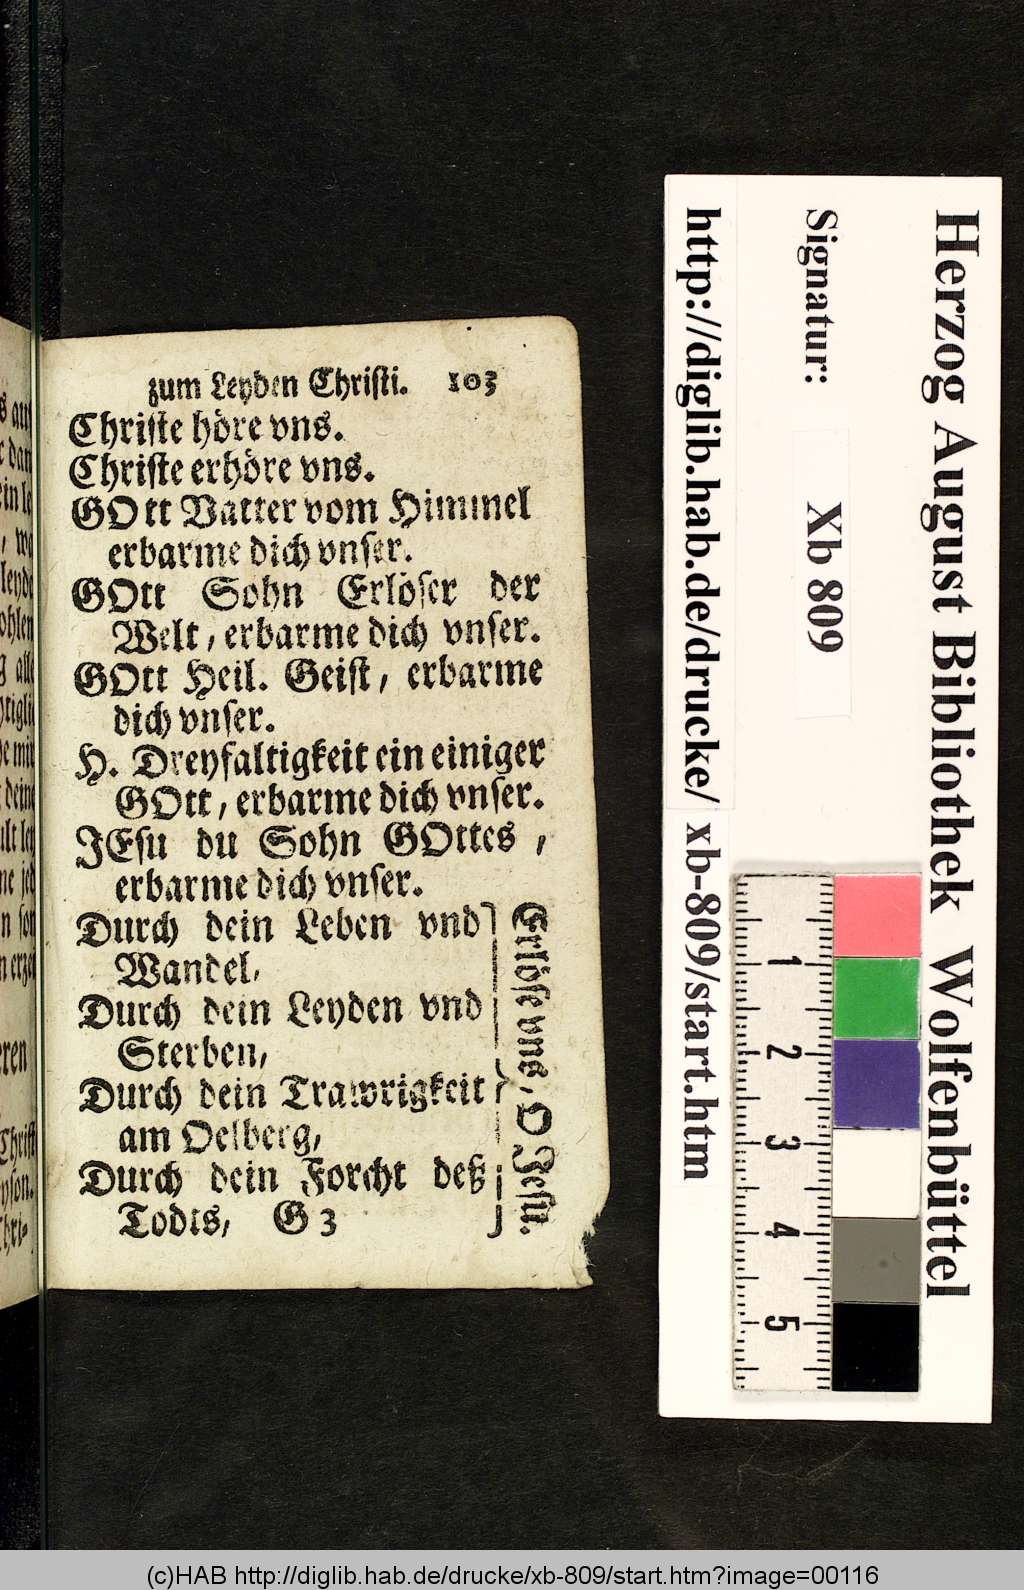 zum Leyden Christi. 103
Christe höre vns.
Christe erhöre vns.
GOtt Vatter vom Himmel
erbarme dich vnser.
GOtt Sohn Erlöser der
Welt, erbarme dich vnser.
GOtt Heil. Geist, erbarme
dich vnser.
H. Dreyfaltigkeit ein einiger
GOtt, erbarme dich vnser.
JEsu du Sohn GOttes,
erbarme dich vnser.
Durch dein Leben vnd
Wandel,
Durch dein Leyden vnd
Sterben,
Durch dein Trawrigkeit
am Oelberg,
Durch dein Forcht deß
Todts, G 3
Erlöse vns, O Jesu.
Herzog August Bibliothek Wolfenbüttel
Signatur: Xb 809
http://diglib.hab.de/drucke/ xb-809/start.htm
1
2
3
4
5
(c)HAB http://diglib.hab.de/drucke/xb-809/start.htm?image=00116